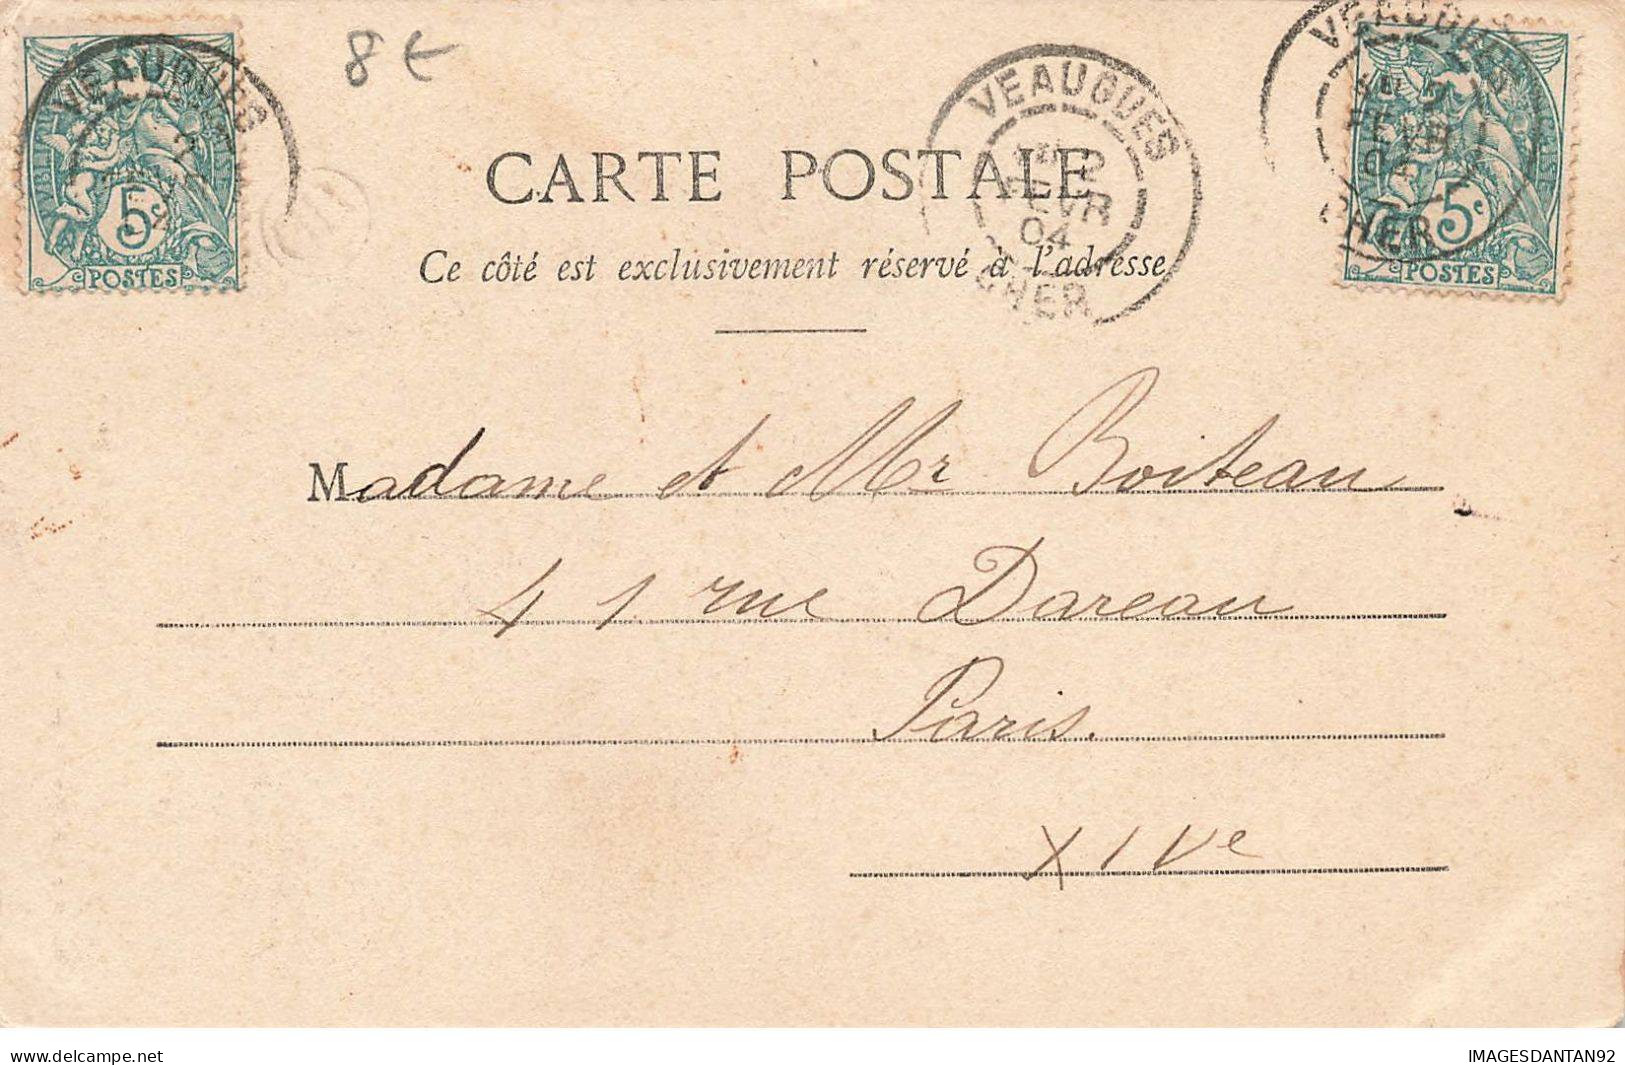 8€
VEAUGUES
5c
POSTES
CARTE POSTALE
Ce côté est exclusivement réservé à l'adresse
VEAUGUES
2
FEVR
04
CHER
VEAUGUES
FEVR
04
CHER
5c
POSTES
Madame et Mr Boiteau
41 rue Dareau
Paris.
XIVe
www.delcampe.net
IMAGESDANTAN92